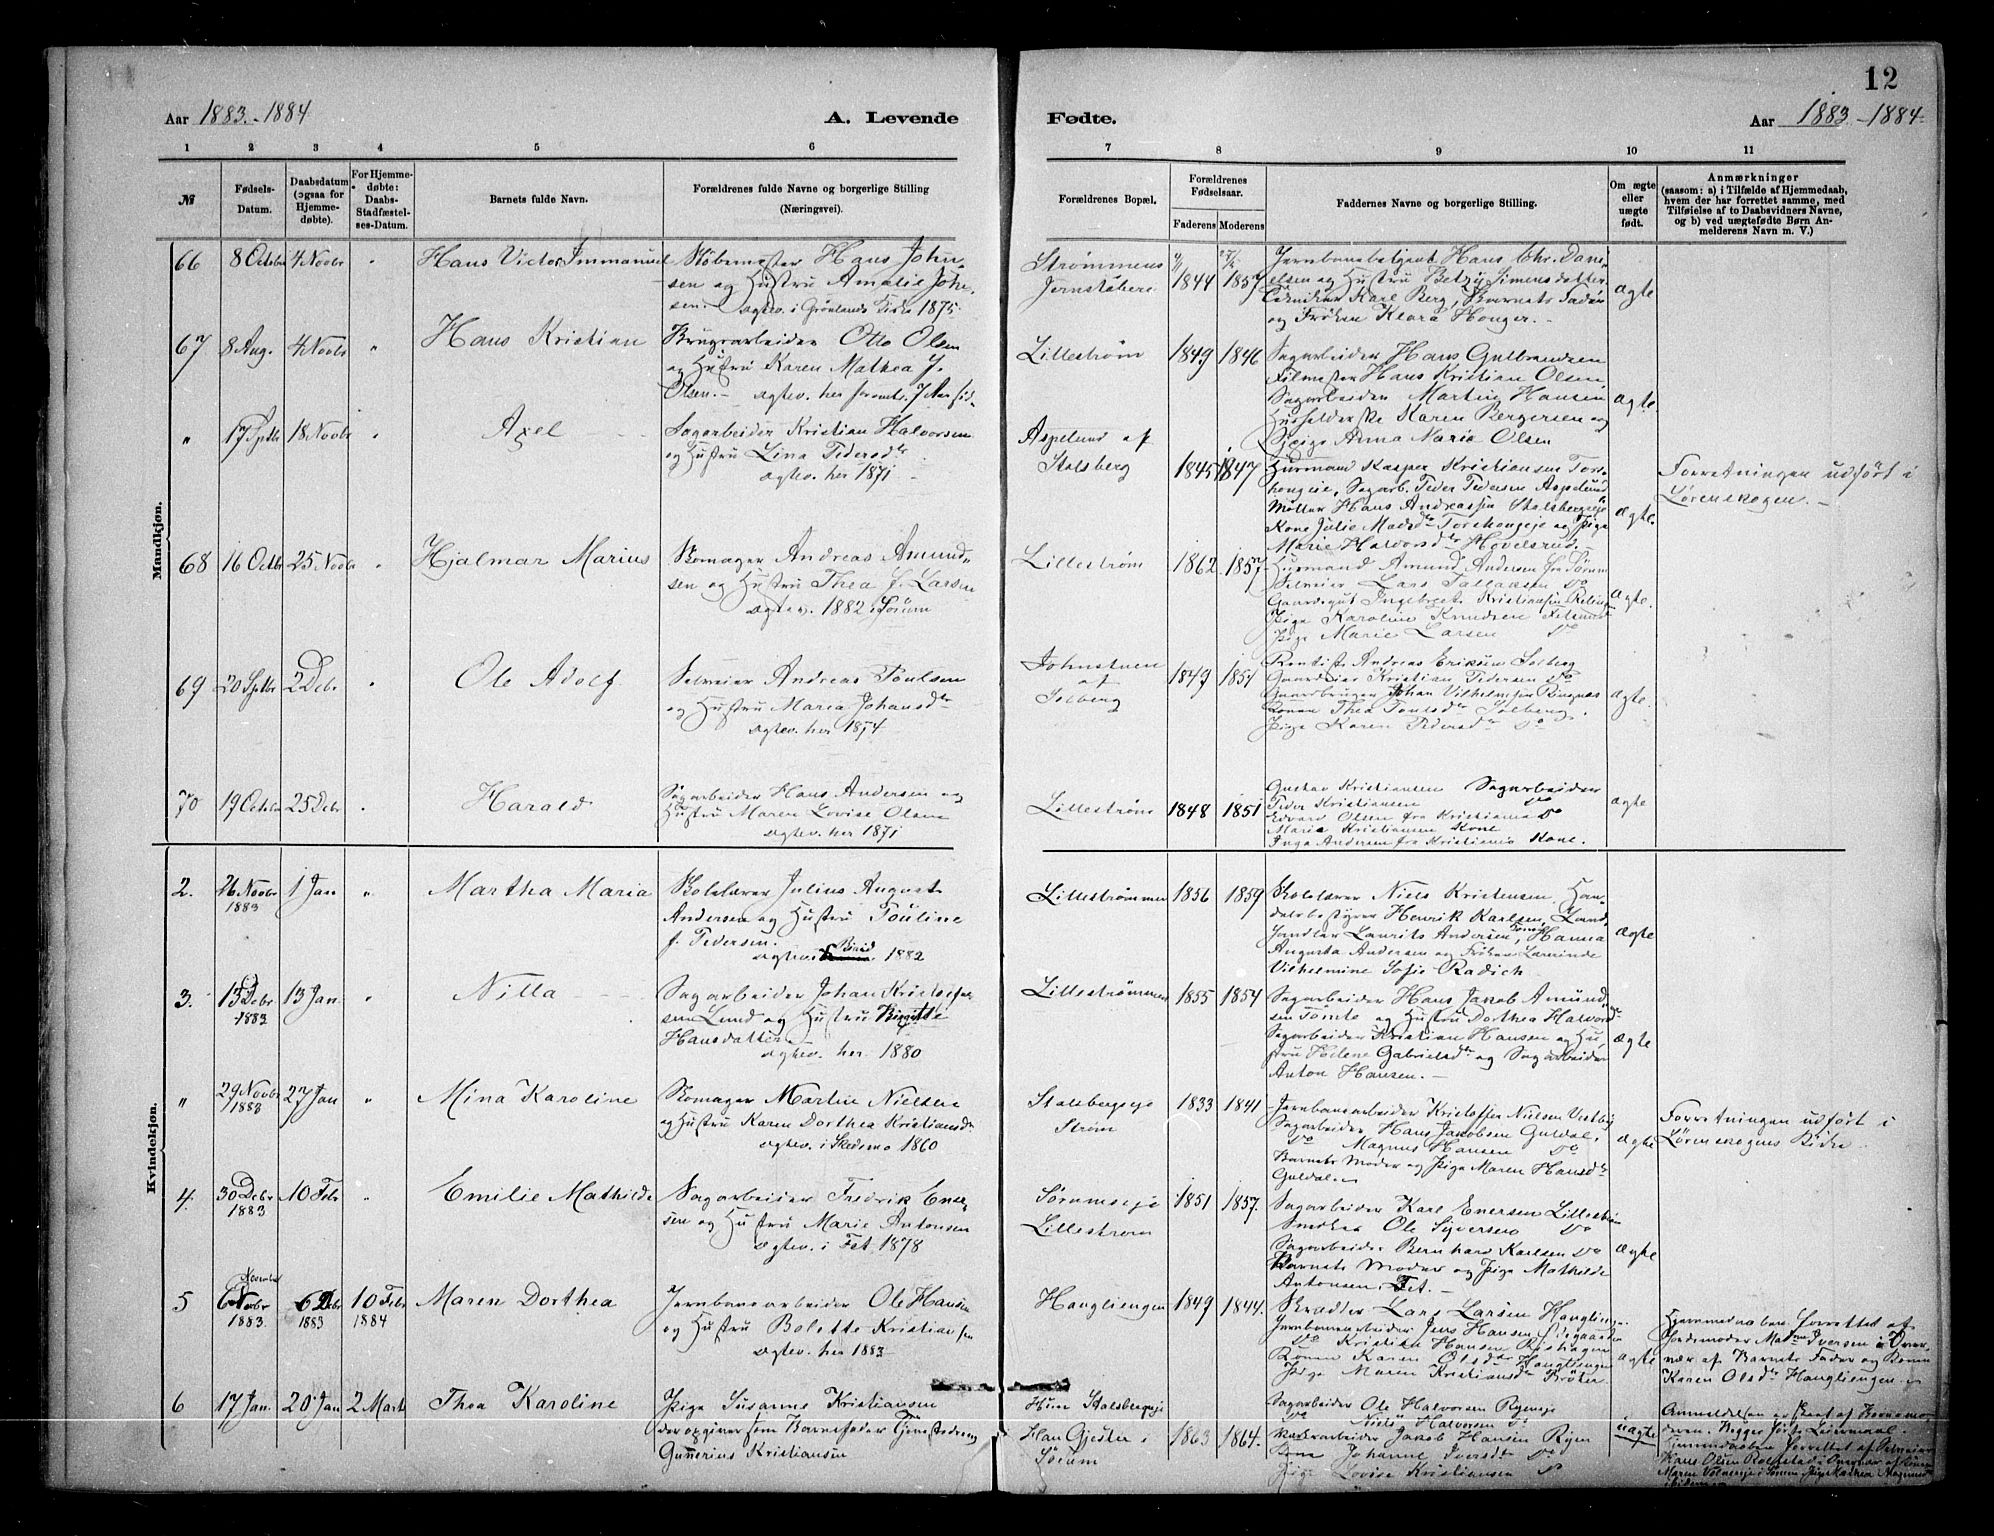 12
Aar 1883.-1884
A. Levende
Fødte.
Aar 1883-1884
1 2 3 4 5 6 7 8 9 10 11
№
Fødsels-
Datum.
Daabsdatum
(ogsaa for
Hjemme-
døbte).
For Hjemme-
døbte:
Daabs-
Stadfæstel-
ses-Datum.
Barnets fulde Navn.
Forældrenes fulde Navne og borgerlige Stilling
(Næringsvei).
Forældrenes Bopæl.
Forældrenes
Fødselsaar.
Faderens Moderens
Faddernes Navne og borgerlige Stilling.
Om ægte
eller
uægte
født.
Anmærkninger
(saasom: a) i Tilfælde af Hjemmedaab,
hvem der har forrettet samme, med
Tilføielse af to Daabsvidners Navne,
og b) ved uægtefødte Børn An-
melderens Navn m. V.)
Mandkjøn.
66 8 Octbr 4 Novbr " Hans Victor Immanuel
Støbemester Hans John-
sen og Hustru Amalie John-
sen. ægtev. i Grønlands Kirke 1875.
Strømmens
Jernstøberi
1844 1857
Jernbanebetjent Hans Chr. Dani-
elsen og Hustru Betzy Simensdatter
Tekniker Karl Berg, Barnets Fader
og Frøken Klara Honger.
ægte
67 8 Aug. 4 Novbr " Hans Kristian
Brugsarbeider Otto Olsen
og Hustru Karen Mathea J.
Olsen.
Lillestrøm
1849 1846
Sagarbeider Hans Gulbrandsen
Hans Kristian Olsen,
Sagarbeider Martin Hansen
Karen Bergersen og
Pige Anna Marie Olsen
ægte
" 17 Sptbr 18 Novbr " Axel
Sagarbeider Kristian Halvorsen
og Hustru Lina Pedersdtr
ægtev. her 1871.
Aspelund af
Stalsberg
1845 1847
Huusmand Kasper Kristiansen
Sagarb. Peder Pedersen Aspelund
Møller Hans Andreassen Stalsbergeie
Kone Julie Madsdtr og Pige
Marie Halvorsdtr Hovelsrud.
ægte.
Forretningen udført i
Lørenskogen.
68 16 Octbr 25 Novbr " Hjalmar Marius
Skomager Andreas Amund-
sen og Hustru Thea L. Larsen
ægtev. 1882 i Sørum
Lillestrøm
1862 1857
Huusmand Amund Andersen fra Sørum
Selveier Lars Do
Ingebret Kristiansen
Pige Karoline Knudsen
Pige Marie Larsen Do
ægte.
69 20 Sptbr 2 Debr " Ole Adolf
Selveier Andreas Poulsen
og Hustru Maria Johansdtr
ægtev. her 1874
Johnstuen
af
Solberg
1849 1851
Andreas Eriksen Solberg
Gaardeier Kristian Pedersen Do
Gaardbruger Johan Vilhelmsen
Konen Thea Poulsdtr Solberg.
Pige Karen Pedersdtr Do
ægte.
70 19 Octbr 25 Debr " Harald
Sagarbeider Hans Andersen og
Hustru Maren Lovise Olsen
ægtev. her 1871
Lillestrøm
1848 1851
Gustav Kristiansen Sagarbeider
Peder Kristiansen Do
Edvard Olsen fra Kristiania Do
Maria Kristiansen Kone
Inga Andersen fra Kristiania Kone.
ægte
Kvindekjøn.
2. 26 Novbr 1883 1 Jan " Martha Maria
Skolelærer Julius August
Andersen og Hustru Pouline
f. Pedersen.
ægtev. i Biri 1882
Lillestrømmen
1856 1859
Skolelærer Niels Kristensen, Han-
delsbestyrer Henrik Karlsen, Land-
handler Laurits Andersen, Hanna
Augusta Andersen og Frøken
Vilhelmine Sofie Radich
ægte
3. 13 Debr 1883 13 Jan " Nilla
Sagarbeider Johan Kristofer-
sen Lund og Hustru Birgitte
Hansdatter
ægtev. her. 1880
Lillestrømmen
1855 1854
Sagarbeider Hans Jakob Amund-
sen Tomte og Hustru Dorthea Halvorsdtr
Sagarbeider Kristian Hansen og Hu-
stru Helene Gabrielsdtr og Sagarbeider
Anton Hansen.
ægte
" 29 Novbr 1883 27 Jan " Mina Karoline
Skomager Martin Nielsen
og Hustru Karen Dorthea Kristiansdtr
ægtev. i Skedsmo 1860
Stalsbergeie
Strøm
1833 1841
Jernbanearbeider Kristoffer Nielsen Vestby
Sagarbeider Hans Jacobsen Guldal,
Do Magnus Hansen Do
Barnets Moder og Pige Maren Hansdtr
Guldal.
ægte
Forretningen udført i
Lørenskogens Kirke
4. 30 Debr 1883 10 Febr " Emilie Mathilde
Sagarbeider Fredrik Ener-
sen og Hustru Marie Antonsen
ægtev. i Fet. 1878
Sørumseje
Lillestrøm
1851 1857.
Sagarbeider Karl Enersen Lillestrøm
Snedker Ole Syversen Do
Sagarbeider Bernhard Karlsen Do
Barnets Moder og Pige Mathilde
Antonsen, Fet.
ægte
5 November 6 Novbr 1883. 6 Debr 1883 10 Febr 1884 Maren Dorthea
Jernbanearbeider Ole Hansen
og Hustru Bolette Kristiansen
ægtev. her 1883
Hauglieengen
1849 1844.
Skrædder Lars Larsen
Jernbanearbeider Jens Hansen
Do Kristian Hansen
Konen Karen Olsdtr
Pige Maren Kristiansdtr Brøter.
ægte
Hjemmedaaben forrettet af
Jordemoder Iversen i Over-
vær af Barnets Fader og Konen
Karen Olsdtr
6 17 Jan. 20 Jan 2 Marts Thea Karoline
Pige Susanne Kristiansen
der opgiver som Barnefader Tjenestedreng
Gunerius Kristiansen
Hun Stalsbergeje
Han Gjester i
Sørum
1863 1864.
Sagarbeider Ole Halvorsen Ryenseje
Do Niels Halvorsen Do
Jakob Hansen Ryen
Kone Johanne Iversdtr Do
Pige Lovise Kristiansen Do
uægte
Anmeldelsen er skeet af Barnemo-
deren. Begges første Leiermaal.
Hjemmedaaben forrettet af Selveier
Hans Olsen